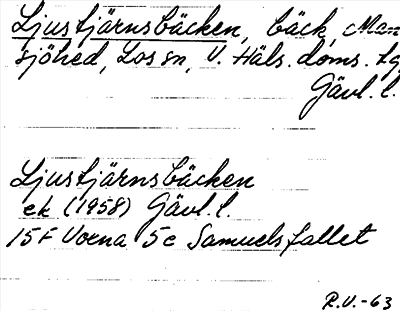 Ljustjärnsbäcken, bäck, Man
sjöhed, Los sn, V. Häls. doms. tg
Gävl. l.
Ljustjärnsbäcken
ek (1958) Gävl. l.
15F Voxna 5c Samuelsfallet
R.V.-63